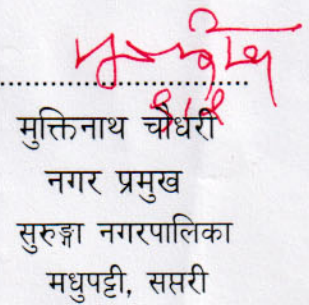 मुक्तिनाथ चौधरी
नगर प्रमुख
सुरुङ्गा नगरपालिका
मधुपट्टी, सप्तरी